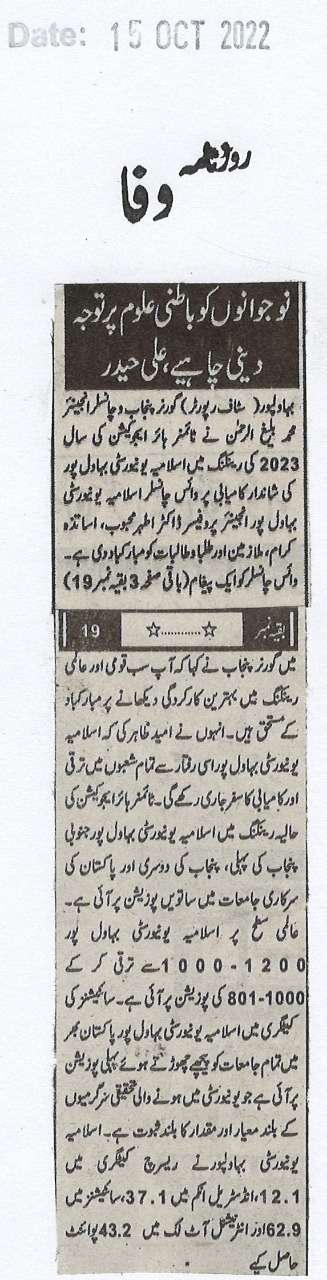 Date: 15 OCT 2022
روزنامہ وفا
نوجوانوں کو باطنی علوم پر توجہ
دینی چاہیے، علی حیدر
بہاولپور( سٹاف رپورٹر) گورنر پنجاب و چانسلر انجینئر
محمد بلیغ الرحمٰن نے ٹائمنر ہائر ایجوکیشن کی سال
2023 کی رینکنگ میں اسلامیہ یونیورسٹی بہاول پور
کی شاندار کامیابی پر وائس چانسلر اسلامیہ یونیورسٹی
بہاول پور انجینئر پروفیسر ڈاکٹر اطہر محبوب، اساتذہ
کرام، ملازمین اور طلباء و طالبات کو مبارکباد دی ہے۔
وائس چانسلر کو ایک پیغام (باقی صفحہ 3 بقیہ نمبر 19)
بقیہ نمبر ☆............☆ 19
میں گورنر پنجاب نے کہا کہ آپ سب قومی اور عالمی
رینکنگ میں بہترین کارکردگی دیکھانے پر مبارکباد
کے مستحق ہیں۔ انہوں نے امید ظاہر کی کہ اسلامیہ
یونیورسٹی بہاول پور اسی رفتار سے تمام شعبوں میں ترقی
اور کامیابی کا سفر جاری رکھے گی۔ ٹائمنر ہائر ایجوکیشن کی
حالیہ رینکنگ میں اسلامیہ یونیورسٹی بہاول پور جنوبی
پنجاب کی پہلی، پنجاب کی دوسری اور پاکستان کی
سرکاری جامعات میں ساتویں پوزیشن پر آئی ہے۔
عالمی سطح پر اسلامیہ یونیورسٹی بہاول پور
1000-1200 سے ترقی کر کے
801-1000 کی پوزیشن پر آئی ہے۔ سائیٹیشنز کی
کیٹگری میں اسلامیہ یونیورسٹی بہاول پور پاکستان بھر
میں تمام جامعات کو پیچھے چھوڑتے ہوئے پہلی پوزیشن
پر آئی ہے جو یونیورسٹی میں ہونے والی تحقیقی سرگرمیوں
کے بلند معیار اور مقدار کا بلند ثبوت ہے۔ اسلامیہ
یونیورسٹی بہاولپور نے ریسرچ کیٹگری میں
12.1، انڈسٹریل انکم میں 37.1، سائیٹیشنز میں
62.9 اور انٹرنیشنل آؤٹ لک میں 43.2 پوائنٹ
حاصل کیے